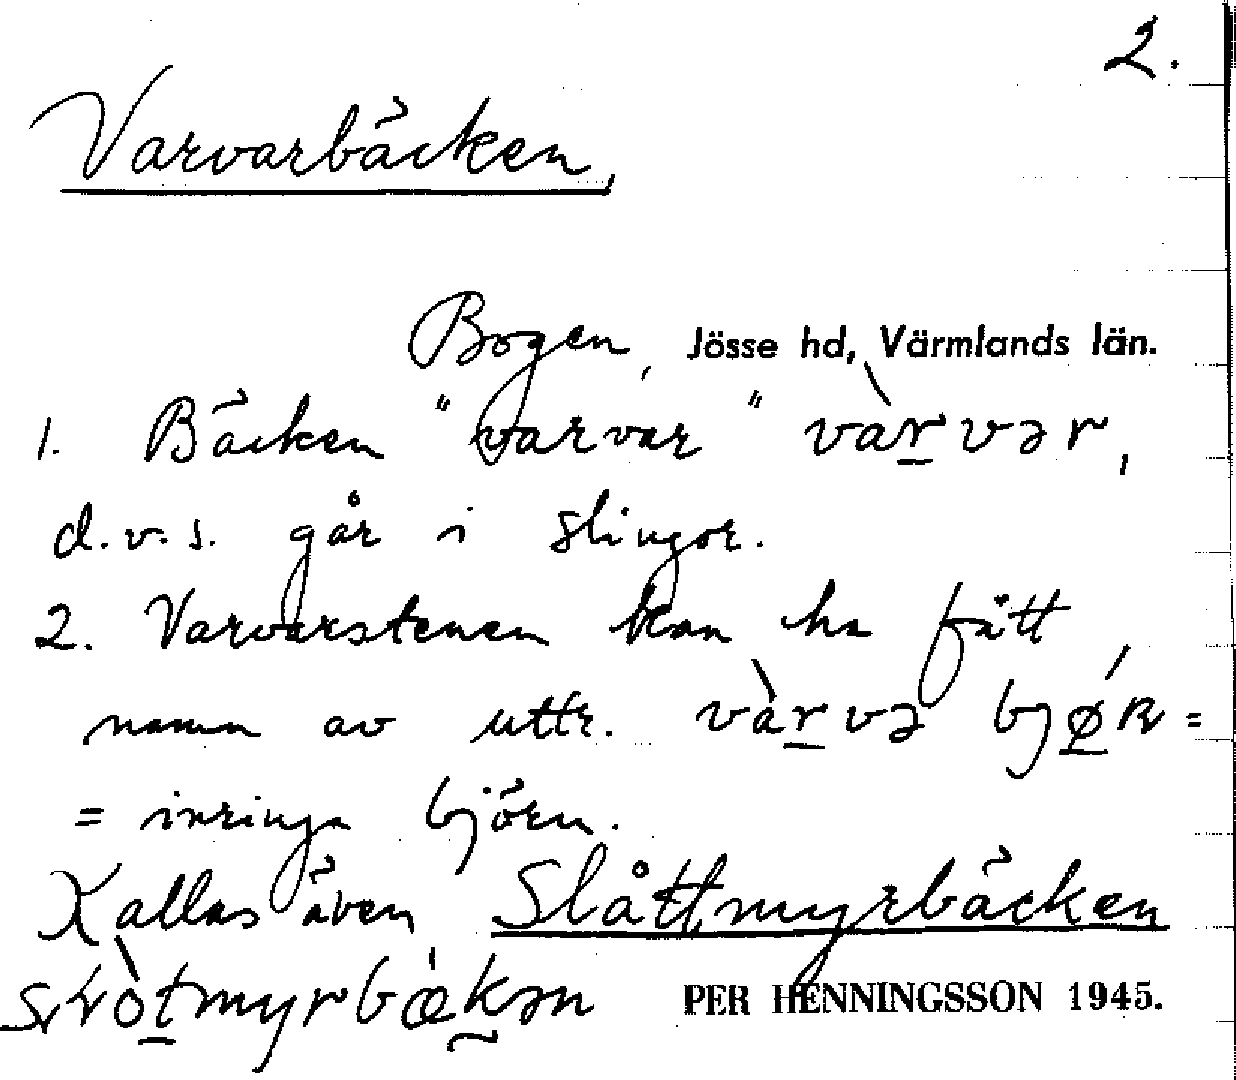 2.
Varvarbäcken,
Bogen, Jösse hd, Värmlands län.
1. Bäcken "varvar" vàr̲vər,
d.v.s. går i slingor.
2. Varvarstenen kan ha fått
namn av uttr. vàr̲və bjǿ̲ɴ =
= inringa björn.
Kallas även Slåttmyrbäcken
PER HENNINGSSON 1945.